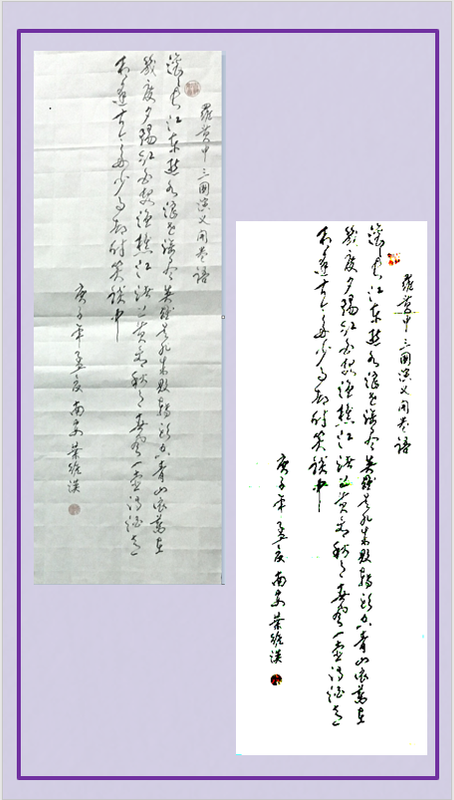 羅贯中三國演义開卷語
滚滚长江東逝水浪花淘尽英雄是非成敗轉头空青山依舊在
幾度夕陽红白髮渔樵江渚上惯看秋月春風一壶濁酒喜
相逢古今多少事都付笑谈中
庚子年孟夏南安葉維
羅贯中三國演义開卷語
滚滚长江東逝水浪花淘尽英雄是非成敗轉头空青山依舊在
幾度夕陽红白髮渔樵江渚上惯看秋月春風一壶濁酒喜
相逢古今多少事都付笑谈中
庚子年孟夏南安葉維